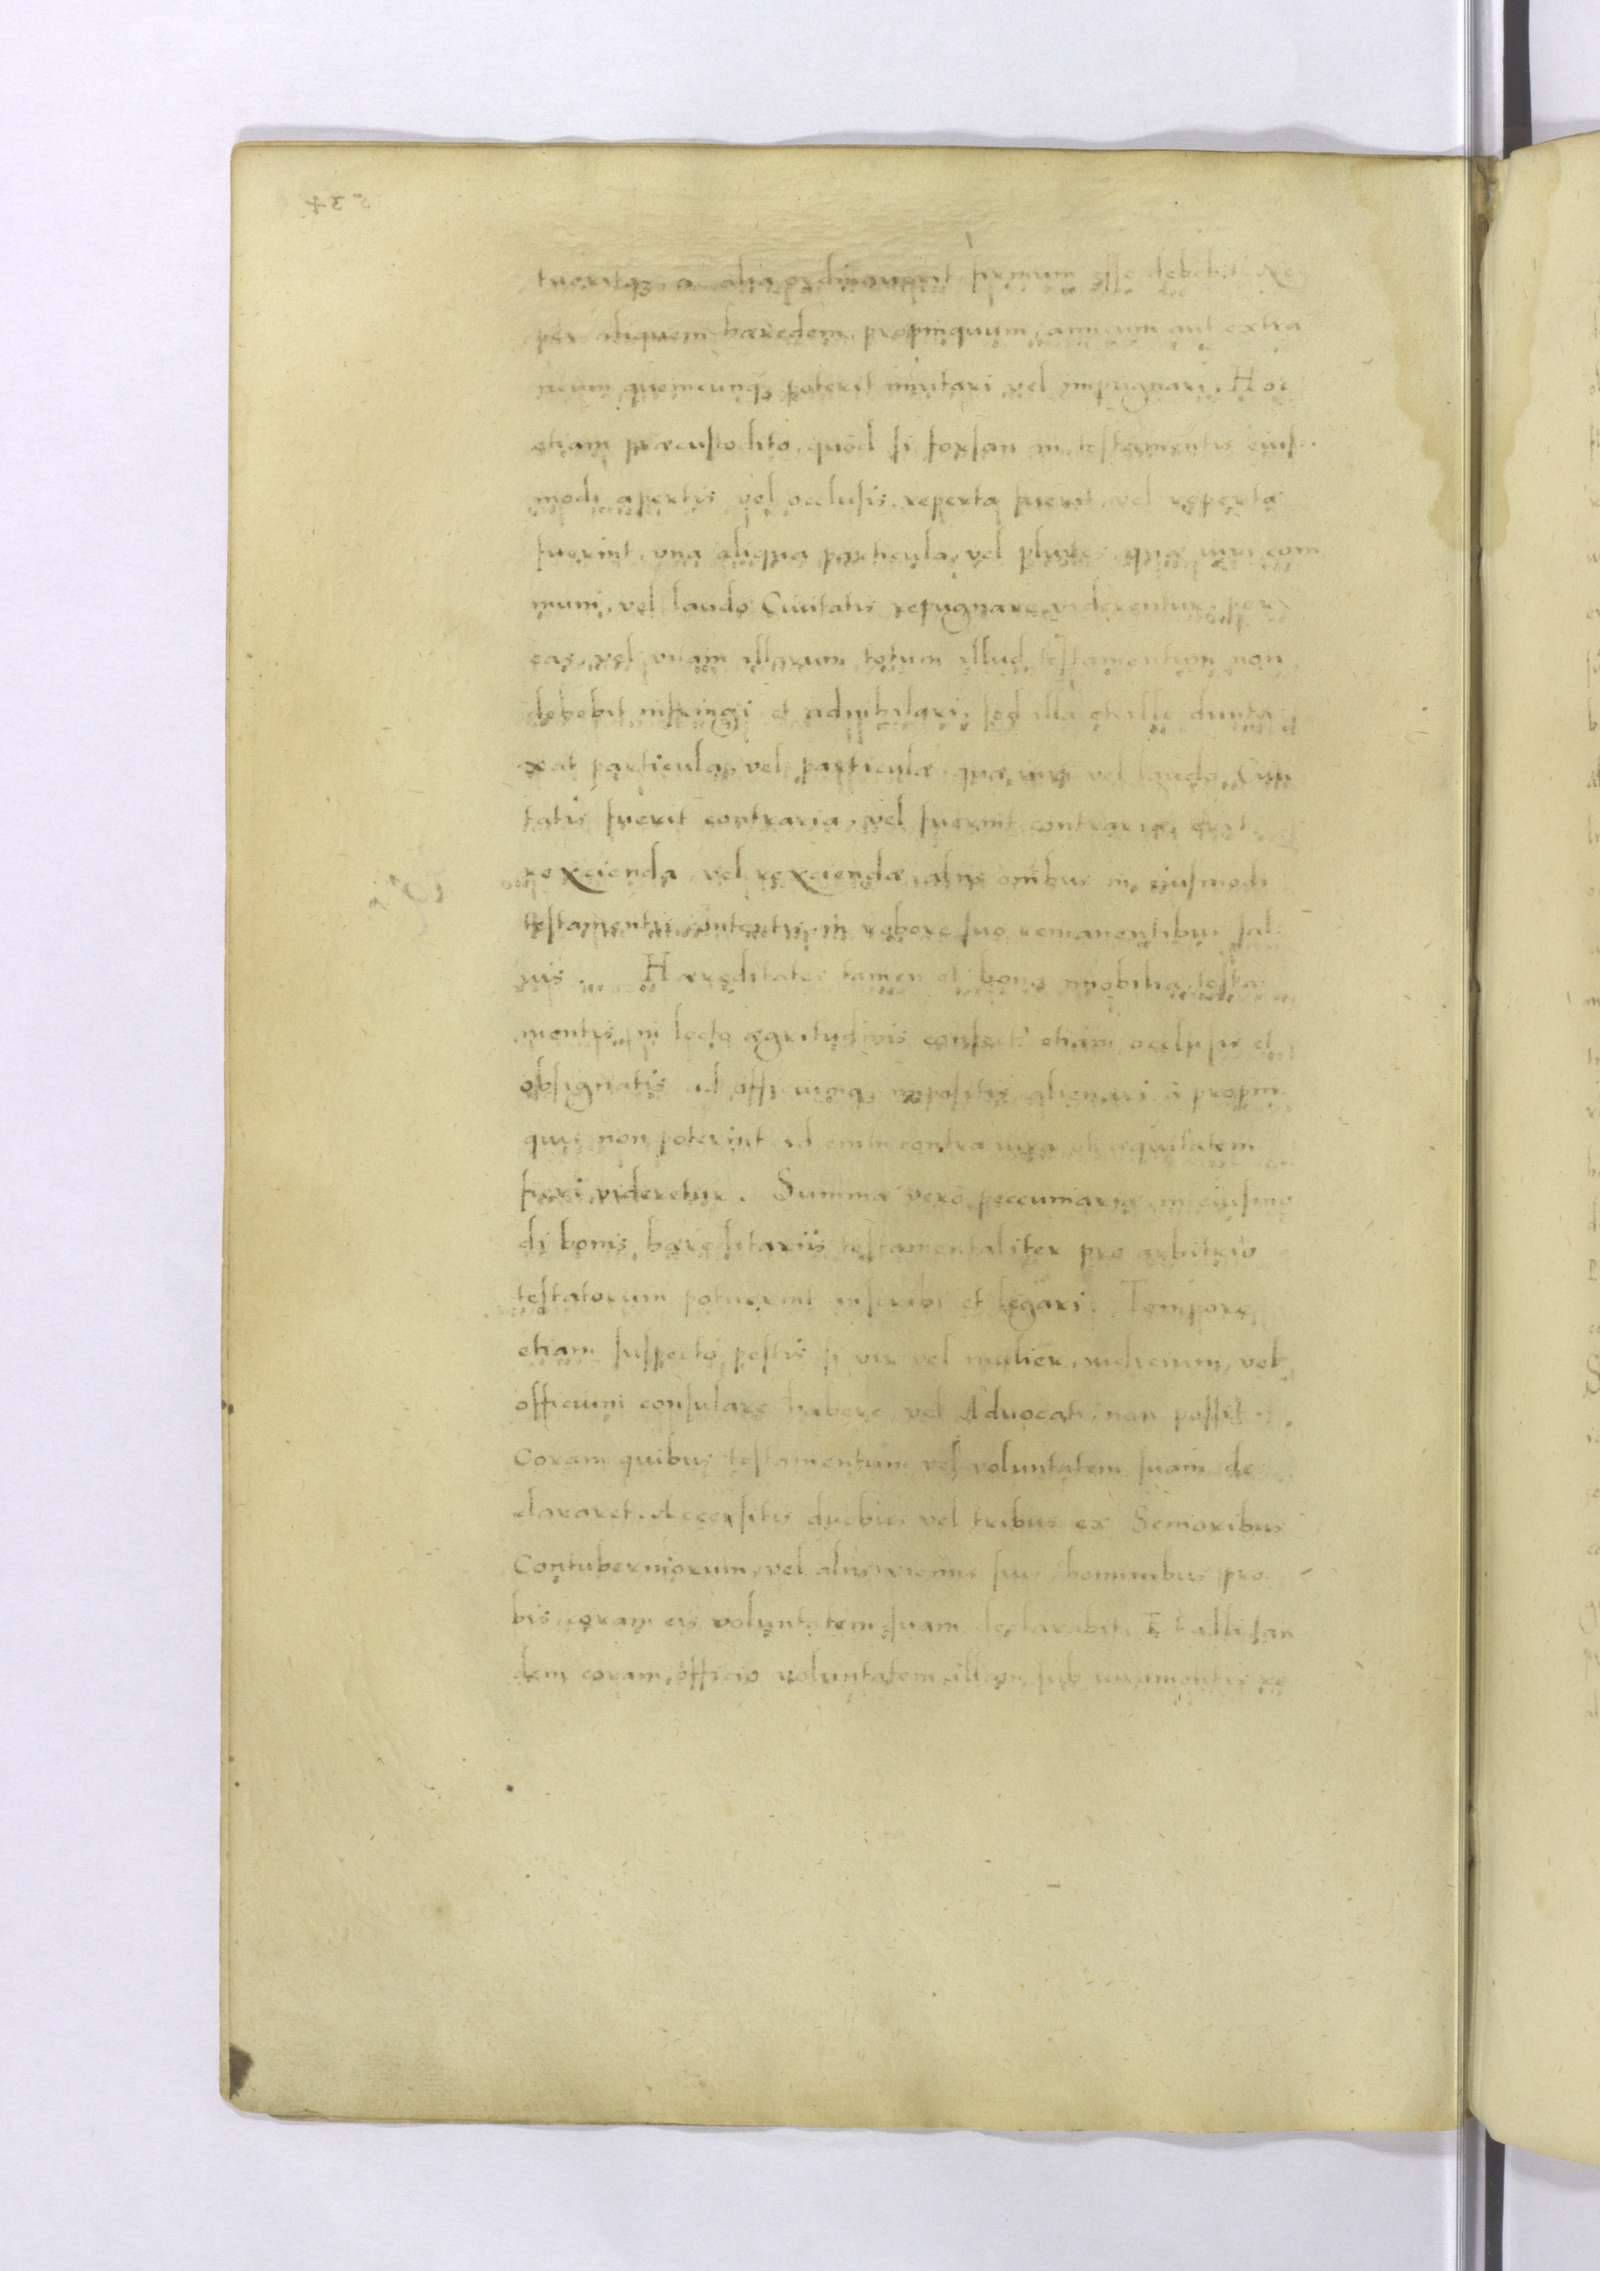 tueritqȝ a alia ordinauerit, firmum esse debebit
per aliquem hæredem, propinquum, amicum aut extra
neum quemcunqȝ poterit mutari vel impugnari. Hoc
etiam præcustodito, quod si forsan in testamentis eius
modi apertis vel occlusis, reperta fuerit, vel reperta
fuerint, vna aliqua particula, vel plures, quæ iuri com
muni, vel laudo Ciuitatis repugnare viderentur, per
eas, vel vnam illarum totum illud testamentum non
debebit infringi et adnihilari, sed illa et ille dunta
xat particula, vel particulæ, quæ iuri vel laudo Ciui
tatis fuerit contraria, vel fuerint contrariæ, erit
reycienda vel reyciendæ, alijs omibus in eiusmodi
testamentis contentis in robore suo remanentibus sal
uis. Hæreditates tamen et bona mobilia, testa
mentis in lecto ægritudinis confectis etiam occlusis et
obsignatis ad officiumqȝ repositis alienari à propin
quis non poterint id enim contra iura et æquitatem
fieri videretur. Summæ vero peccuniariæ in eiusmo
di bonis hæreditariis testamentaliter pro arbitrio
testatorum potuerint inscribi et legari. Tempore
etiam suspecto pestis si vir vel mulier, iudicium, vel
officium consulare habere, vel Aduocati, non possit
Coram quibus testamentum vel voluntatem suam de
clararet. Accersitis duobus vel tribus ex Senioribus
Contuberniorum, vel aliis vicinis suis hominibus pro
bis, coram eis voluntatem suam declarabit. Et alli tan
dem coram officio voluntatem illam sub iuramentis re